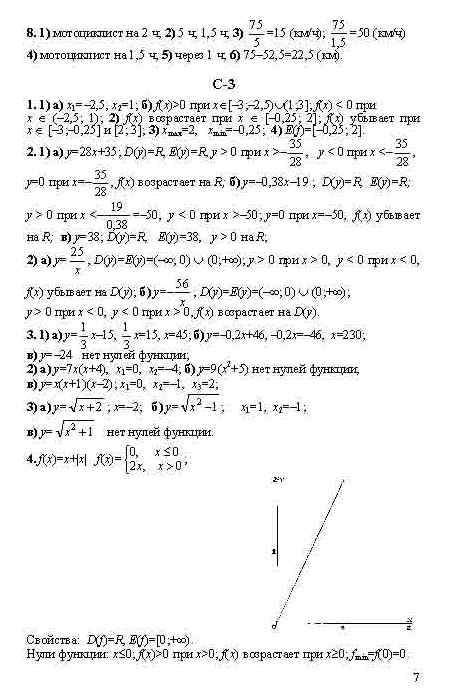 8. 1) мотоциклист на 2 ч; 2) 5 ч; 1,5 ч; 3) 75/5 =15 (км/ч); 75/1,5 =50 (км/ч)
4) мотоциклист на 1,5 ч; 5) через 1 ч; 6) 75–52,5=22,5 (км).
С-3
1. 1) а) x₁=–2,5; x₂=1; б) f(x)>0 при x∈[–3;–2,5)∪(1;3]; f(x) < 0 при
x ∈ (–2,5; 1); 2) f(x) возрастает при x ∈ [–0,25; 2]; f(x) убывает при
x ∈ [–3;–0,25] и [2; 3]; 3) xmax=2, xmin=–0,25; 4) E(f)=[–0,25; 2].
2. 1) а) y=28x+35; D(y)=R, E(y)=R, y > 0 при x >–35/28, y < 0 при x <–35/28,
y=0 при x=–35/28, f(x) возрастает на R; б) y=–0,38x–19 ; D(y)=R, E(y)=R;
y > 0 при x <–19/0,38=–50, y < 0 при x >–50; y=0 при x=–50, f(x) убывает
на R; в) y=38; D(y)=R, E(y)=38, y > 0 на R;
2) а) y= 25/x, D(y)=E(y)=(–∞; 0) ∪ (0;+∞); y > 0 при x > 0, y < 0 при x < 0,
f(x) убывает на D(y); б) y=–56/x, D(y)=E(y)=(–∞; 0) ∪ (0;+∞);
y > 0 при x < 0, y < 0 при x > 0, f(x) возрастает на D(y).
3. 1) а) y=1/3 x–15, 1/3 x=15, x=45; б) y=–0,2x+46, –0,2x=–46, x=230;
в) y= –24 нет нулей функции;
2) а) y=7x(x+4), x₁=0, x₂=–4; б) y=9(x²+5) нет нулей функции;
в) y=x(x+1)(x–2); x₁=0, x₂=–1, x₃=2;
3) а) y=√(x+2); x=–2; б) y=√(x²–1); x₁=1, x₂=–1;
в) y= √(x²+1) нет нулей функции.
4. f(x)=x+|x| f(x)={0, x≤0; 2x, x>0;
Свойства: D(f)=R, E(f)=[0;+∞).
Нули функции: x≤0; f(x)>0 при x>0; f(x) возрастает при x≥0; fmin=f(0)=0.
7